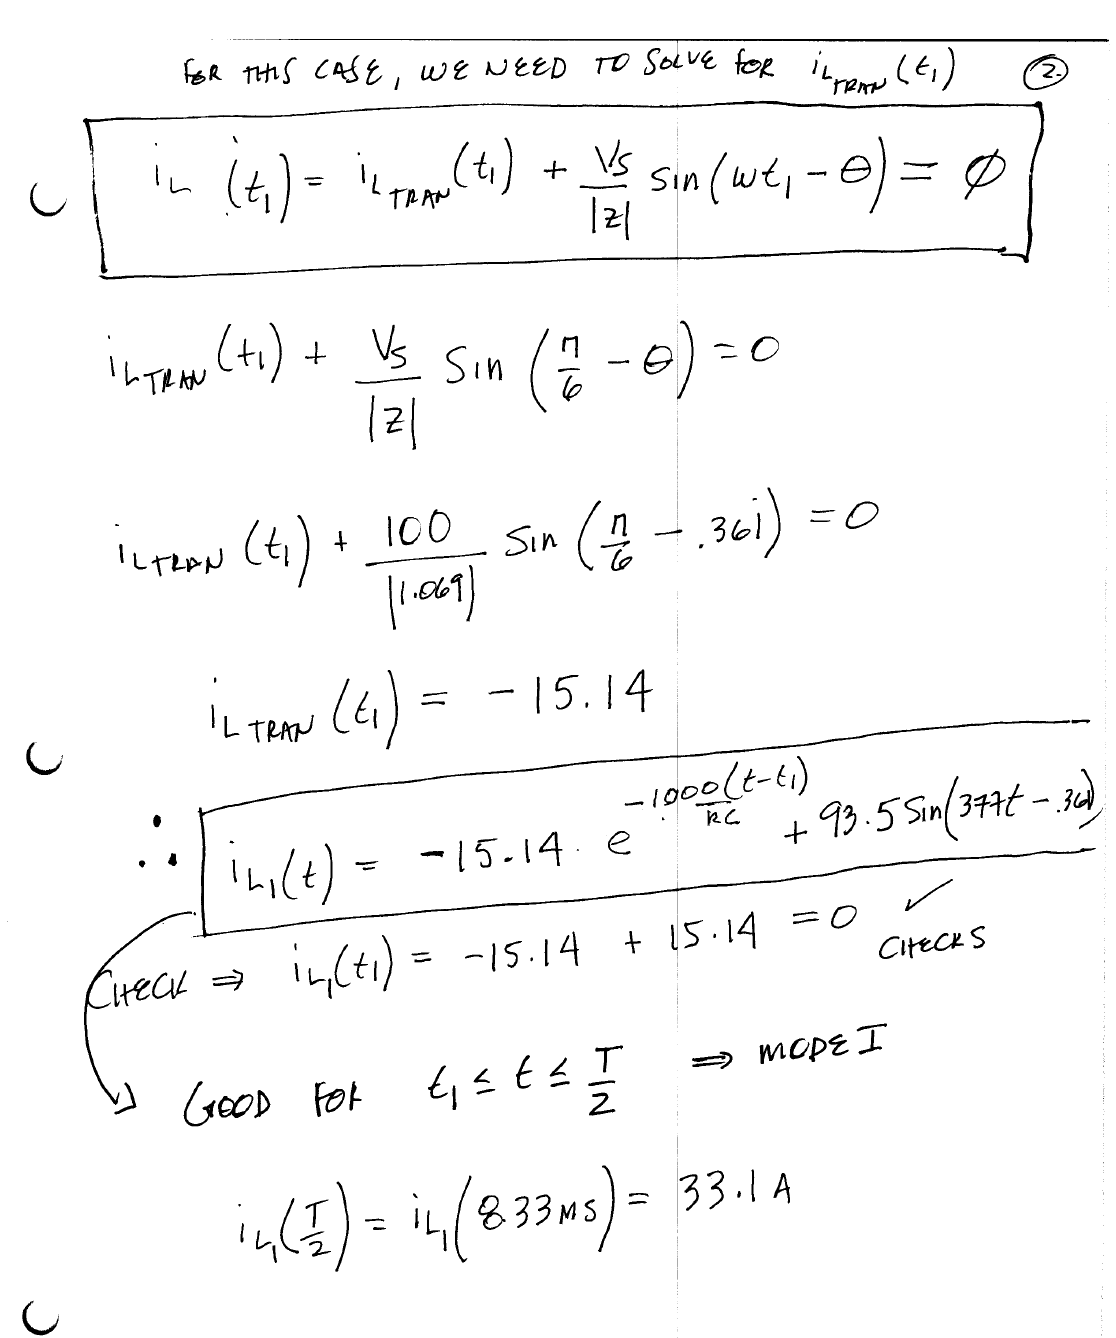 FOR THIS CASE, WE NEED TO SOLVE FOR i_{L TRAN}(t_1) ②
i_L(t_1) = i_{L TRAN}(t_1) + \frac{V_S}{|Z|} sin(ωt_1 - θ) = ∅
i_{L TRAN}(t_1) + \frac{V_S}{|Z|} Sin(\frac{π}{6} - θ) = 0
i_{L TRAN}(t_1) + \frac{100}{|1.069|} Sin(\frac{π}{6} - .361) = 0
i_{L TRAN}(t_1) = -15.14
∴ i_{L_1}(t) = -15.14 · e^{-1000(t-t_1)} + 93.5 Sin(377t - .361)
CHECK ⇒ i_{L_1}(t_1) = -15.14 + 15.14 = 0 ✓ CHECKS
GOOD FOR t_1 ≤ t ≤ \frac{T}{2} ⇒ MODE I
i_{L_1}(\frac{T}{2}) = i_{L_1}(8.33MS) = 33.1 A